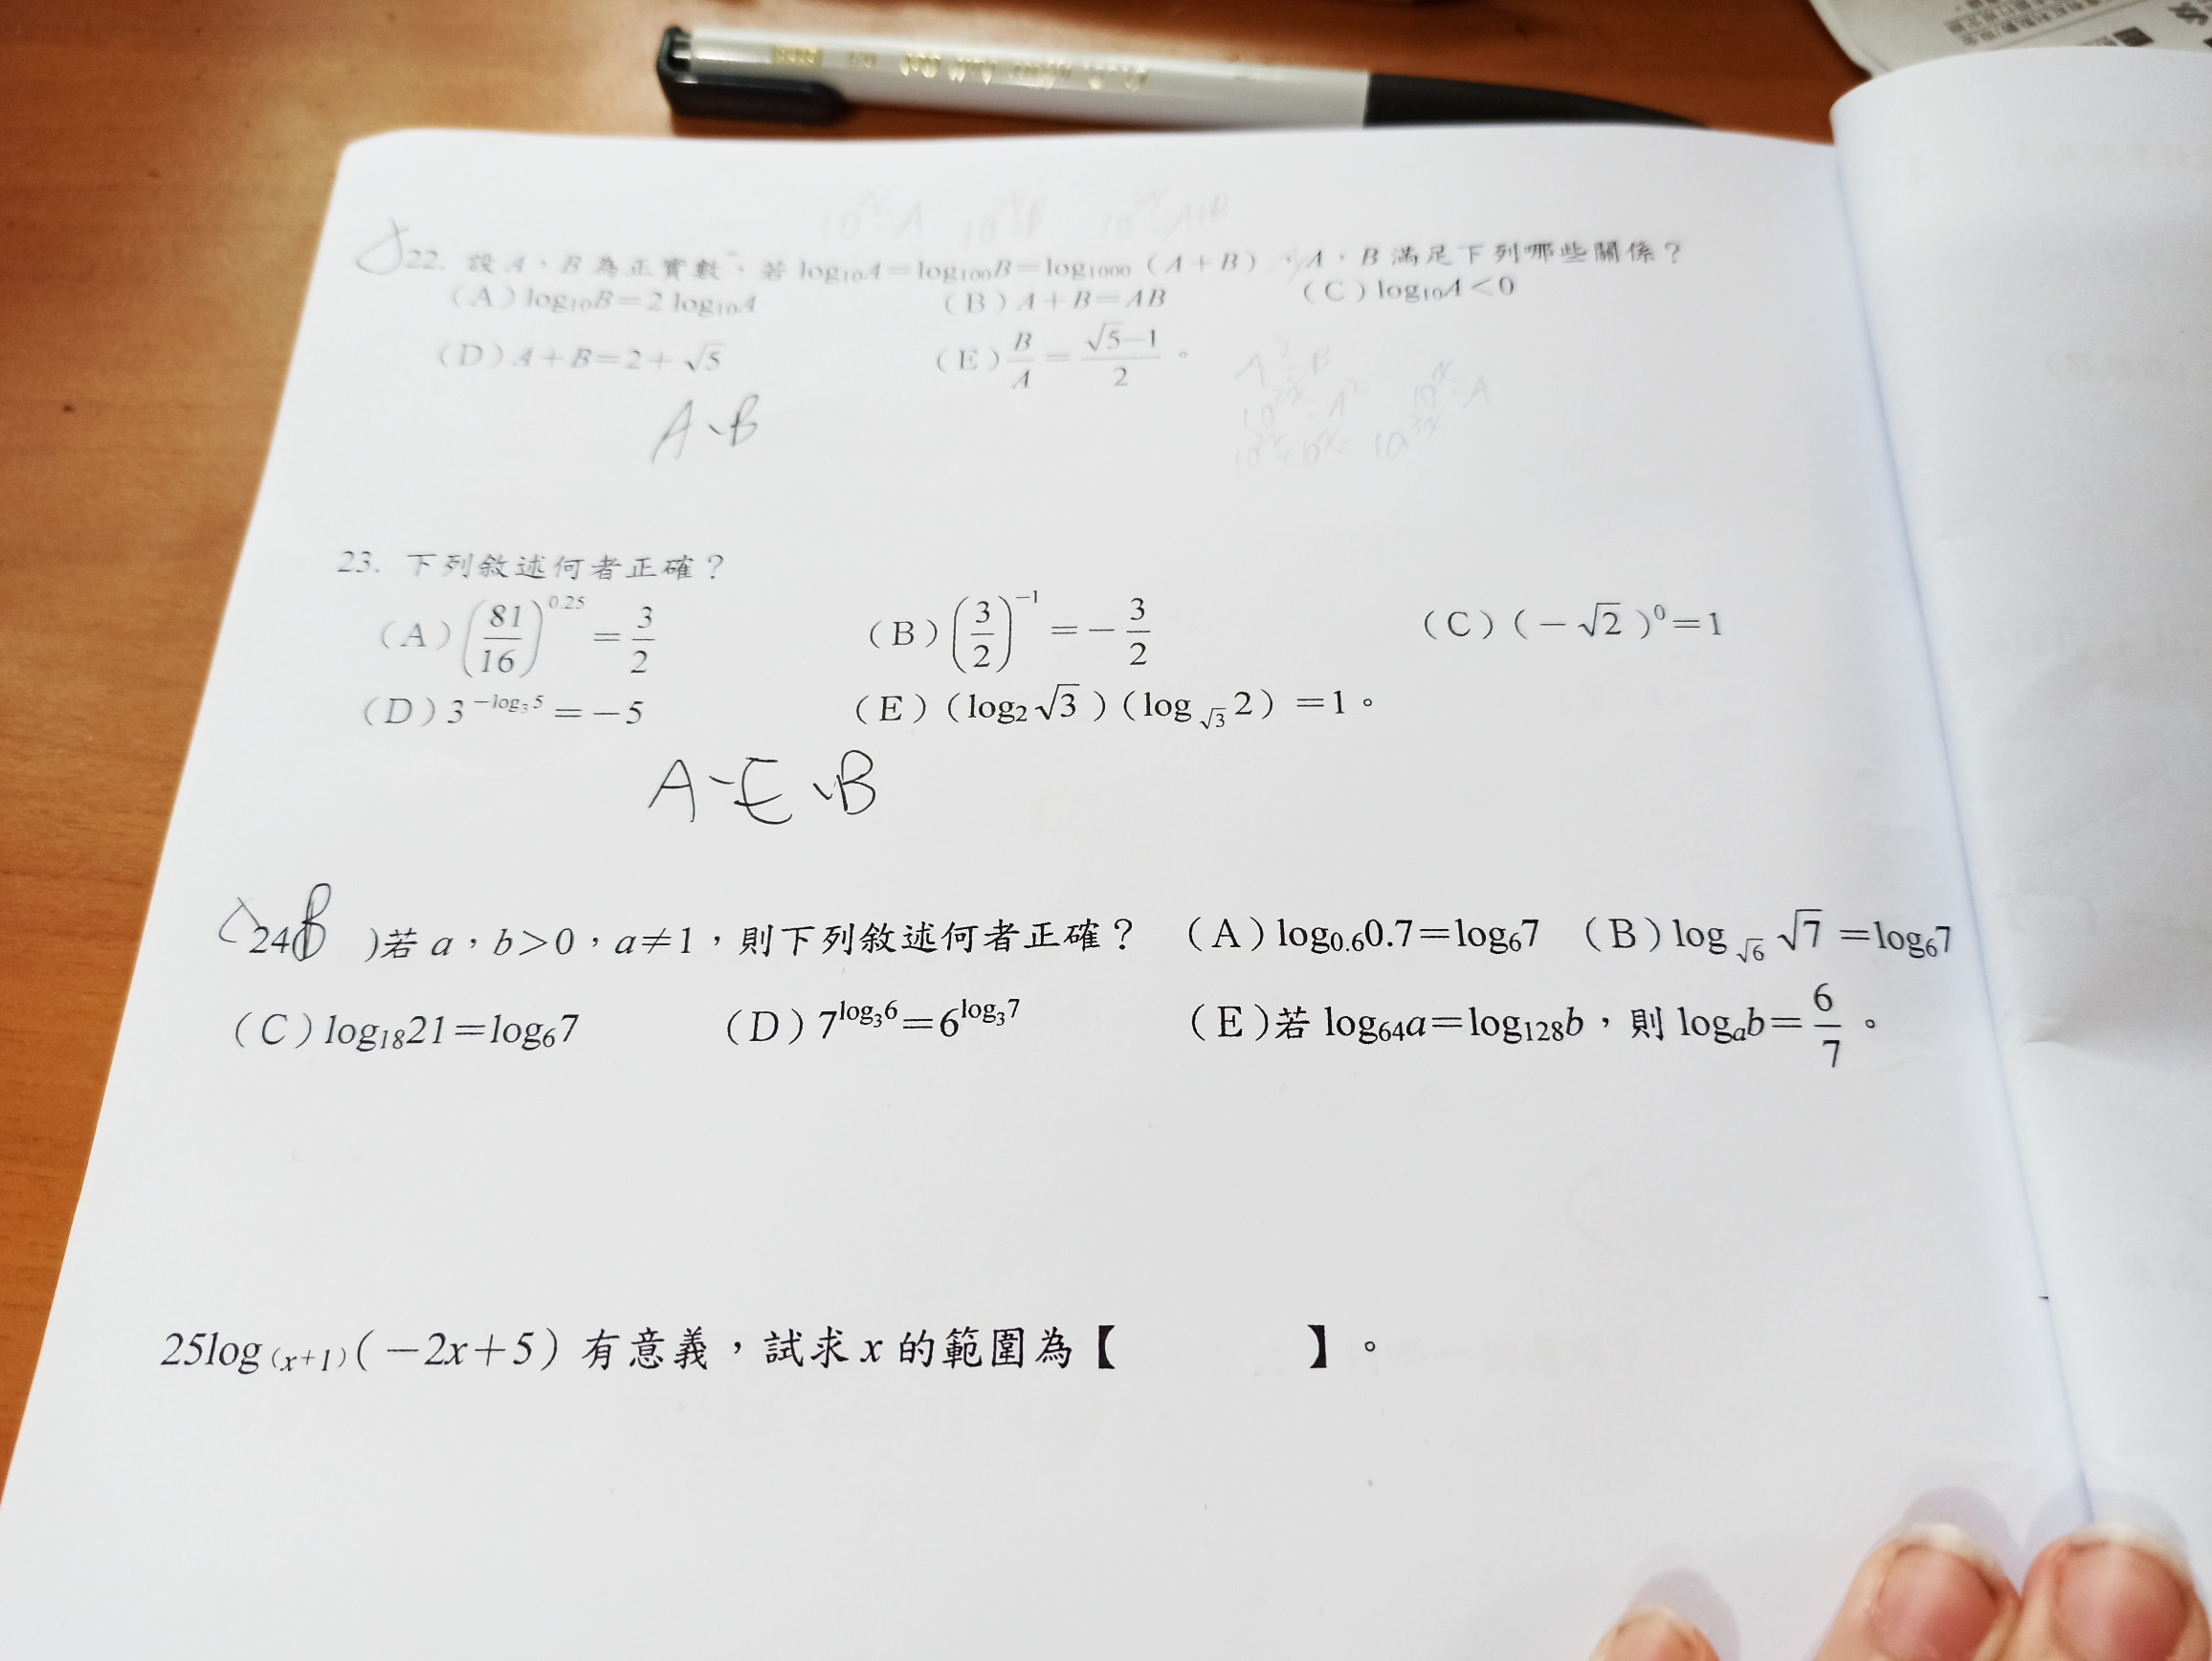 22. 設 A、B 為正實數,若 log₁₀A=log₁₀₀B=log₁₀₀₀(A+B),A,B 滿足下列哪些關係?
(A) log₁₀B=2 log₁₀A (B) A+B=AB (C) log₁₀A<0
(D) A+B=2+√5 (E) B/A = (√5-1)/2。
A²=B
10ˣ=A
A、B
23. 下列敘述何者正確?
(A) (81/16)^0.25 = 3/2 (B) (3/2)^-1 = -3/2 (C) (-√2)⁰=1
(D) 3^(-log₃5) = -5 (E) (log₂√3)(log_√3 2) =1。
A、E、B
24(B )若 a,b>0,a≠1,則下列敘述何者正確? (A) log₀.₆0.7=log₆7 (B) log_√6 √7 =log₆7
(C) log₁₈21=log₆7 (D) 7^(log₃6)=6^(log₃7) (E)若 log₆₄a=log₁₂₈b,則 logₐb=6/7。
25log₍ₓ₊₁₎(-2x+5) 有意義,試求 x 的範圍為【 】。